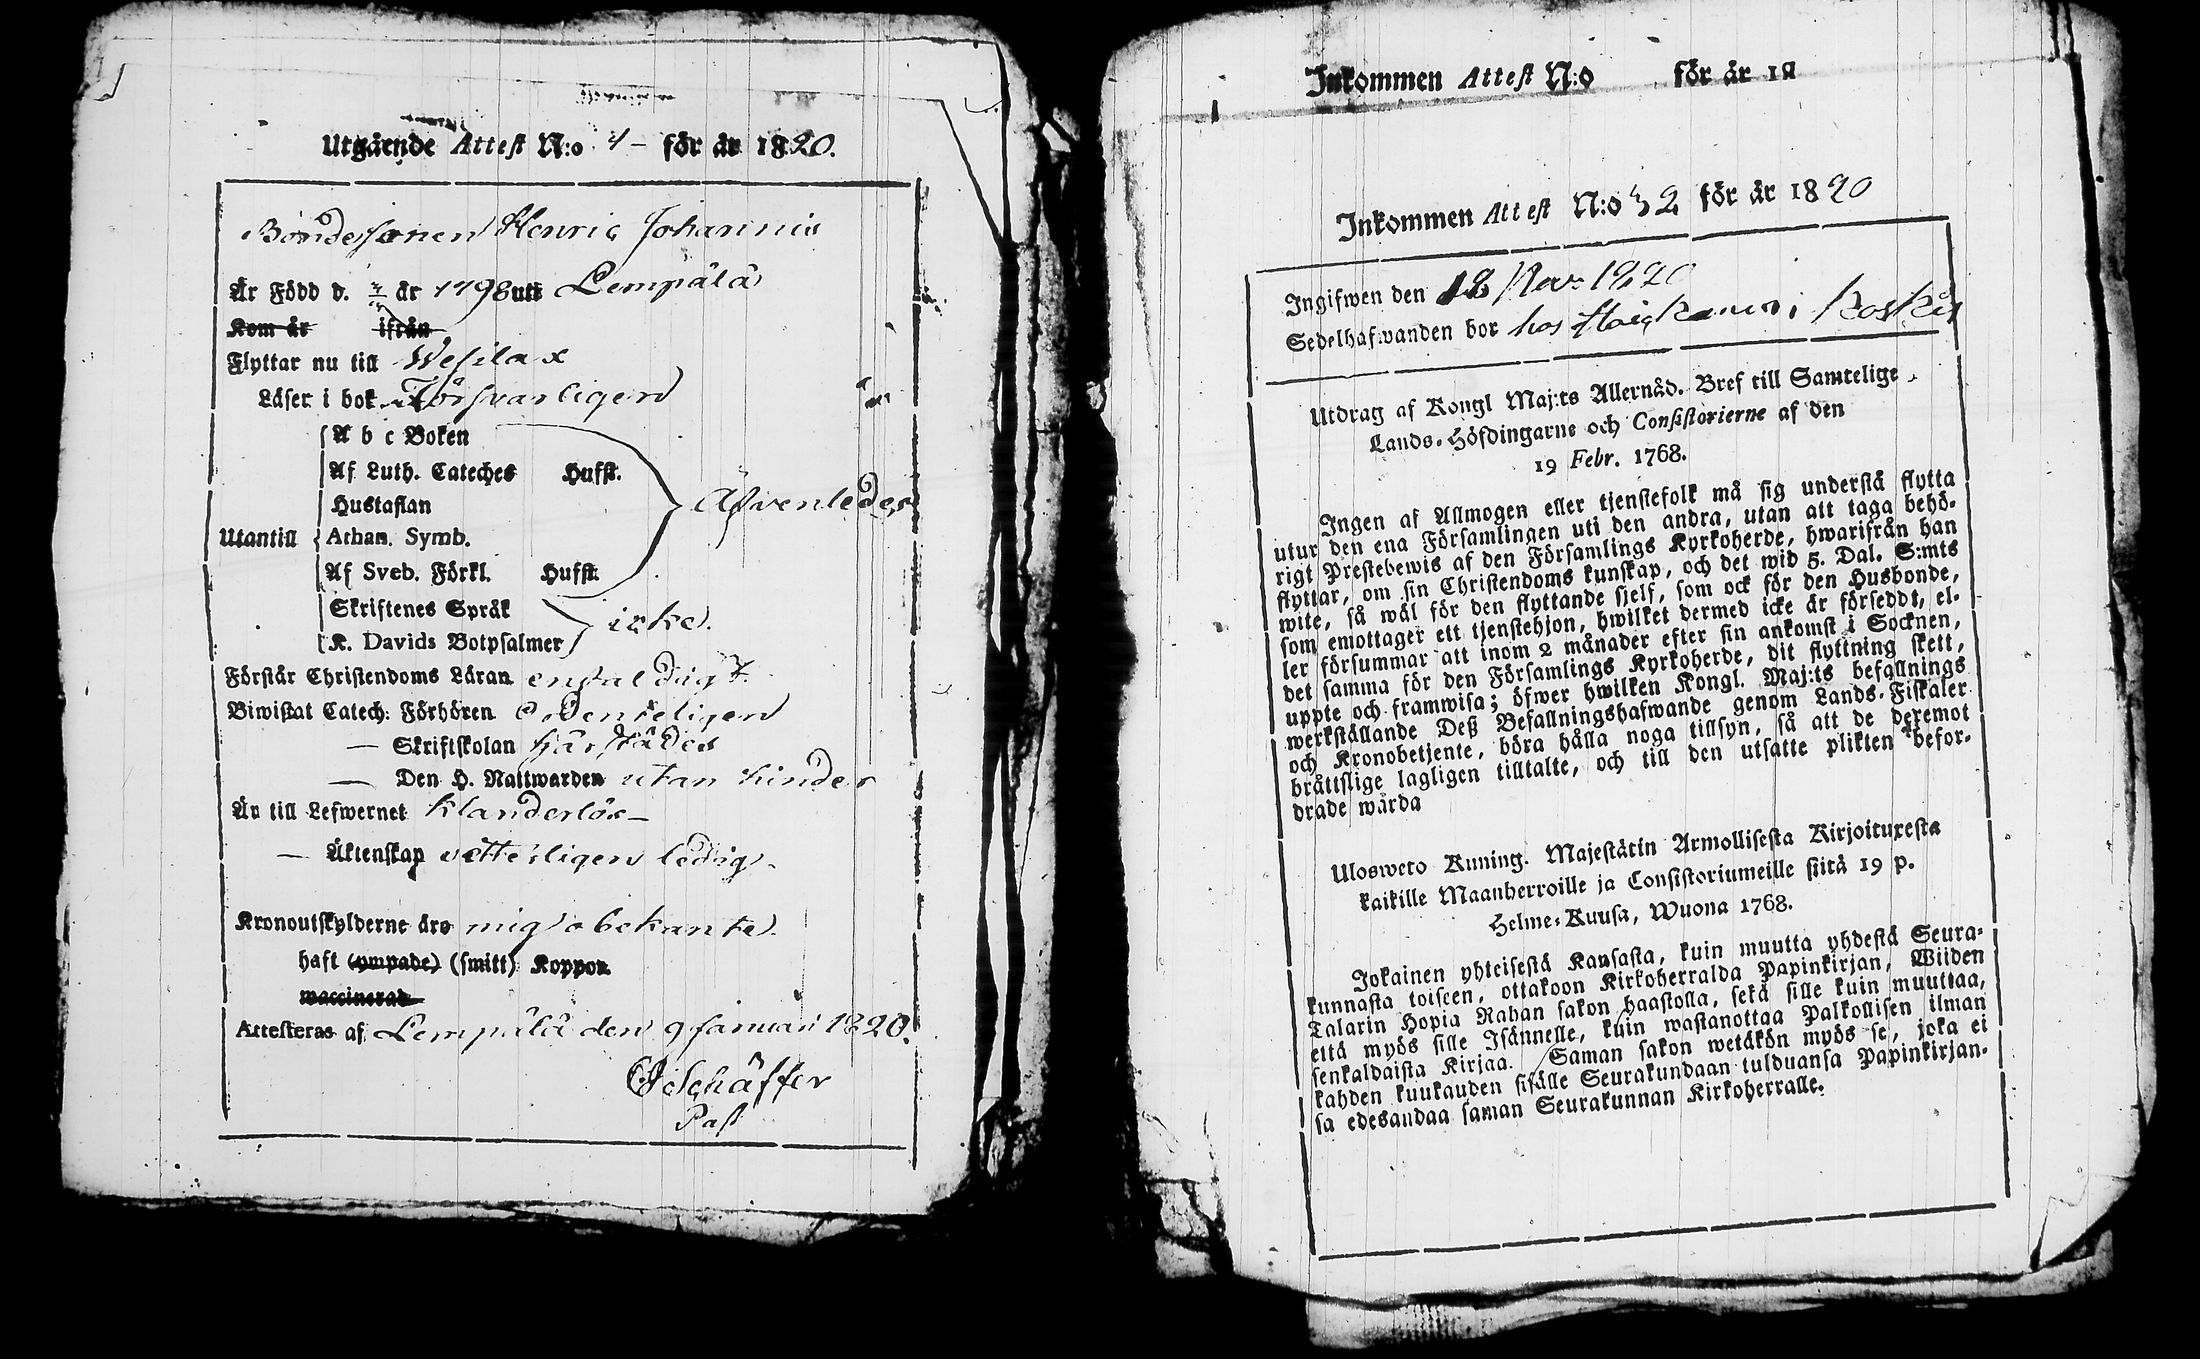 Utgående Attest N:o 4 – för år 1820.
Bondesonen Henric Johannis
Är Född d. år 1798 uti Lempälä
Kom år ifrån
Flyttar nu till Wesilax
Läser i bok Försvarligen
A b c Boken
Af Luth. Cateches Hufst.
Hustaflan
Äfvenledes
Utantill Athan. Symb.
Af Sveb. Förkl. Hufst.
Skriftenes Språk
icke.
K. Davids Botpsalmer
Förstår Christendoms Läran enfaldigt.
Biwistat Catech: Förhören Ordenteligen
— Skriftskolan härstädes
— Den H. Nattwarden utan hinder
Är till Lefwernet klanderlös –
— Äktenskap vetterligen ledig.
Kronoutskylderne äro mig obekante.
haft (ympade) (smitt) Koppor.
waccinerad
Attesteras af Lempälä den 9 Januari 1820.
Schäffer
Past
Inkommen Attest N:o för år 18
Inkommen Attest N:o 32 för år 1820
Ingifwen den 12 Nov 1820
Sedelhafwanden bor hos i Koskis
Utdrag af Kongl Maj:ts Allernåd. Bref till Samtelige
Lands-Höfdingarne och Consistorierne af den
19 Febr. 1768.
Ingen af Allmogen eller tjenstefolk må sig understå flytta
utur den ena Församlingen uti den andra, utan att taga behö-
rigt Prestebewis af den Församlings Kyrkoherde, hwarifrån han
flyttar, om sin Christendoms kunskap, och det wid 5. Dal. S:mts
wite, så wäl för den flyttande sjelf, som ock för den Husbonde,
som emottager ett tjenstehjon, hwilket dermed icke är försedt, el-
ler försummar att inom 2 månader efter sin ankomst i Socknen,
det samma för den Församlings Kyrkoherde, dit flyttning skett,
uppte och framwisa; öfwer hwilken Kongl. Maj:ts befallnings
werkställande Deß Befallningshafwande genom Lands-Fiskaler
och Kronobetjente, böra hålla noga tillsyn, så att de deremot
bråttslige lagligen tilltalte, och till den utsatte plikten befor-
drade warda
Ulosweto Kuning. Majestätin Armollisesta Kirjoituxesta
kaikille Maanherroille ja Consistoriumeille siitä 19 p.
Helme-Kuusa, Wuona 1768.
Jokainen yhteisestä Kansasta, kuin muutta yhdestä Seura-
kunnasta toiseen, ottakoon Kirkoherralda Papinkirjan, Wiiden
Talarin Hopia Rahan sakon haastolla, sekä sille kuin muuttaa,
että myös sille Isännelle, kuin wastanottaa Palkollisen ilman
senkaldaista Kirjaa. Saman sakon wetäkön myös se, joka ei
kahden kuukauden sisälle Seurakundaan tulduansa Papinkirjan-
sa edesandaa saman Seurakunnan Kirkoherralle.